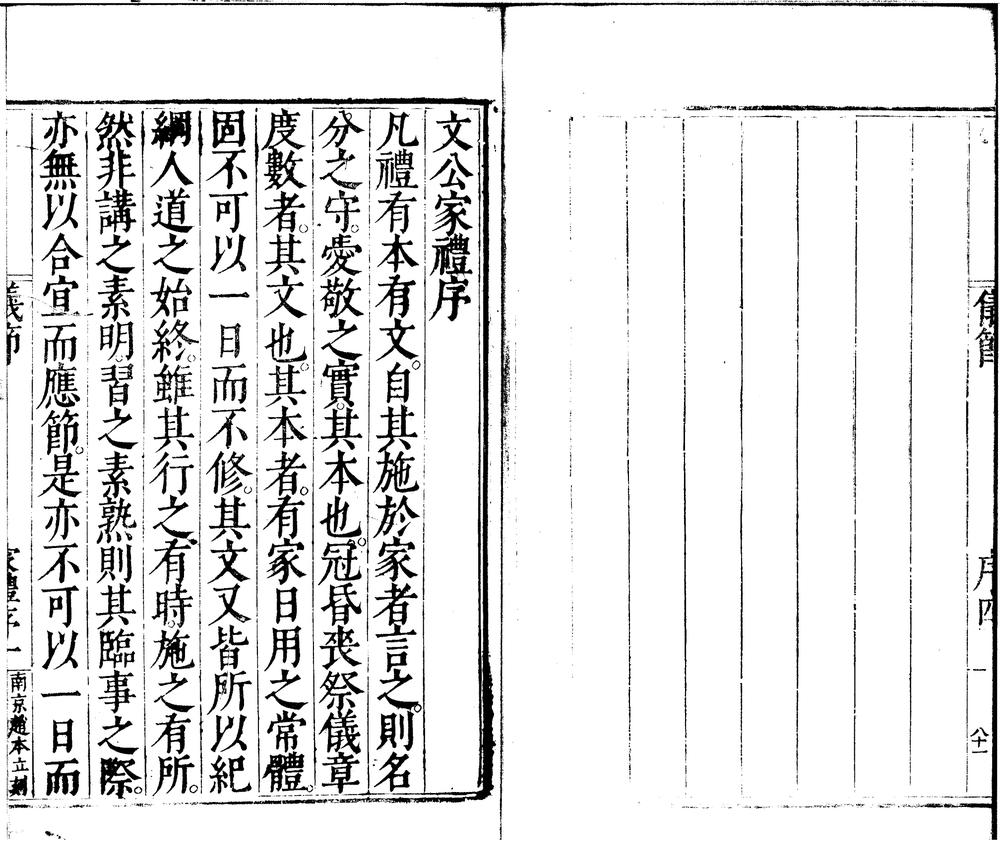 儀節
序四
一
文公家禮序
凡禮有本有文。自其施於家者言之。則名
分之守。愛敬之實。其本也。冠昏喪祭儀章
度數者。其文也。其本者。有家日用之常體。
固不可以一日而不修。其文又皆所以紀
綱人道之始終。雖其行之有時。施之有所。
然非講之素明。習之素熟。則其臨事之際。
亦無以合宜而應節。是亦不可以一日而
儀節
家禮序
一
南京趙本立刻